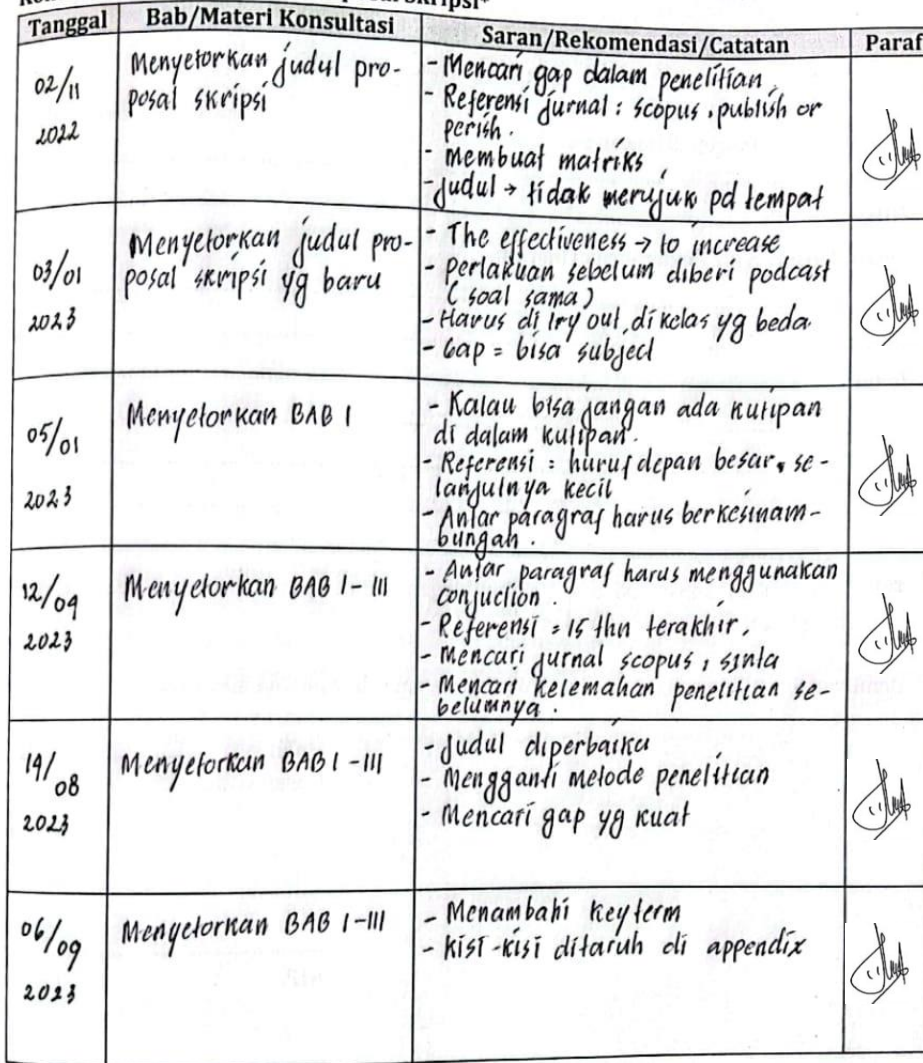 Skripsi*
Tanggal Bab/Materi Konsultasi Saran/Rekomendasi/Catatan Paraf
02/11
2022
Menyetorkan judul pro-
posal skripsi
- Mencari gap dalam penelitian
- Referensi jurnal : scopus, publish or
perish.
- Membuat matriks
- Judul → tidak merujuk pd tempat
03/01
2023
Menyetorkan judul pro-
posal skripsi yg baru
- The effectiveness → to increase
- Perlakuan sebelum diberi podcast
(soal sama)
- Harus di try out, di kelas yg beda.
- Gap = bisa subject
05/01
2023
Menyetorkan BAB I
- Kalau bisa jangan ada kutipan
di dalam kutipan.
- Referensi : huruf depan besar, se-
lanjutnya kecil
- Antar paragraf harus berkesinam-
bungan.
12/04
2023
Menyetorkan BAB I - III
- Antar paragraf harus menggunakan
conjuction.
- Referensi = 15 thn terakhir.
- Mencari jurnal scopus, sinta
Mencari kelemahan penelitian se-
belumnya.
14/08
2023
Menyetorkan BAB I - III
- Judul diperbaiki
- Mengganti metode penelitian
- Mencari gap yg kuat
06/09
2023
Menyetorkan BAB I-III
- Menambahi keyterm
- Kisi-kisi ditaruh di appendix